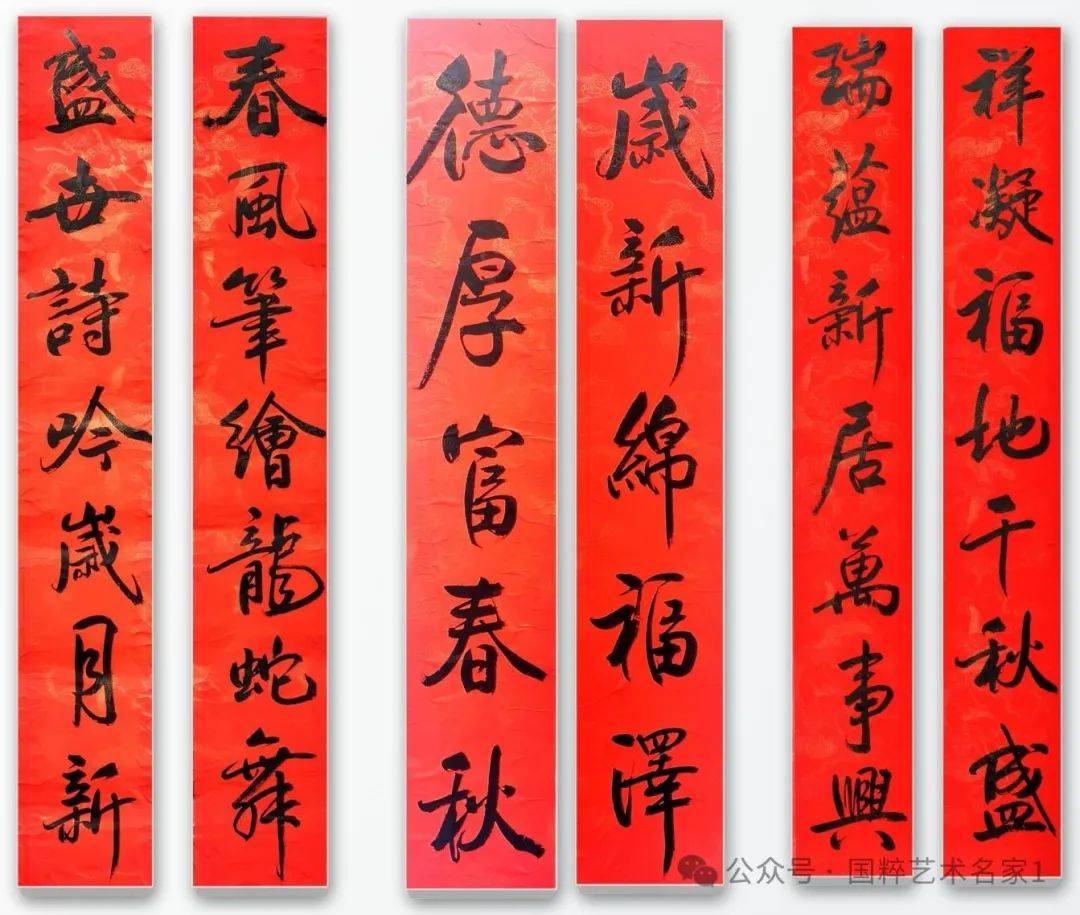 祥凝福地千秋盛
瑞蕴新居萬事興
歲新綿福澤
德厚富春秋
春風筆繪龍蛇舞
盛世詩吟歲月新
公众号·国粹艺术名家1